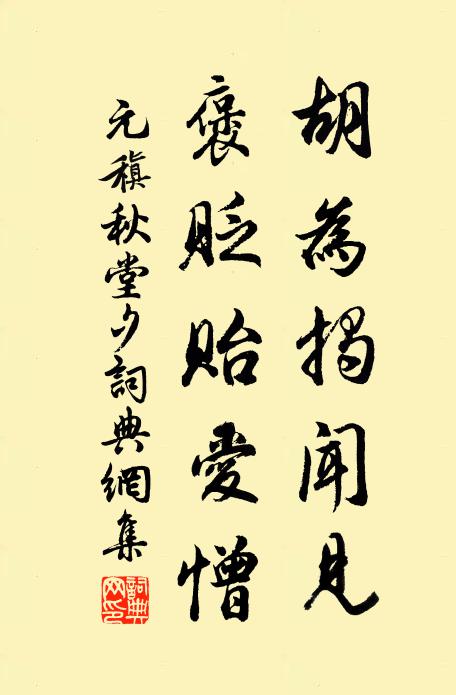 胡為揭聞見
褒貶貽愛憎
元稹秋堂夕詞典網集
詞典網印